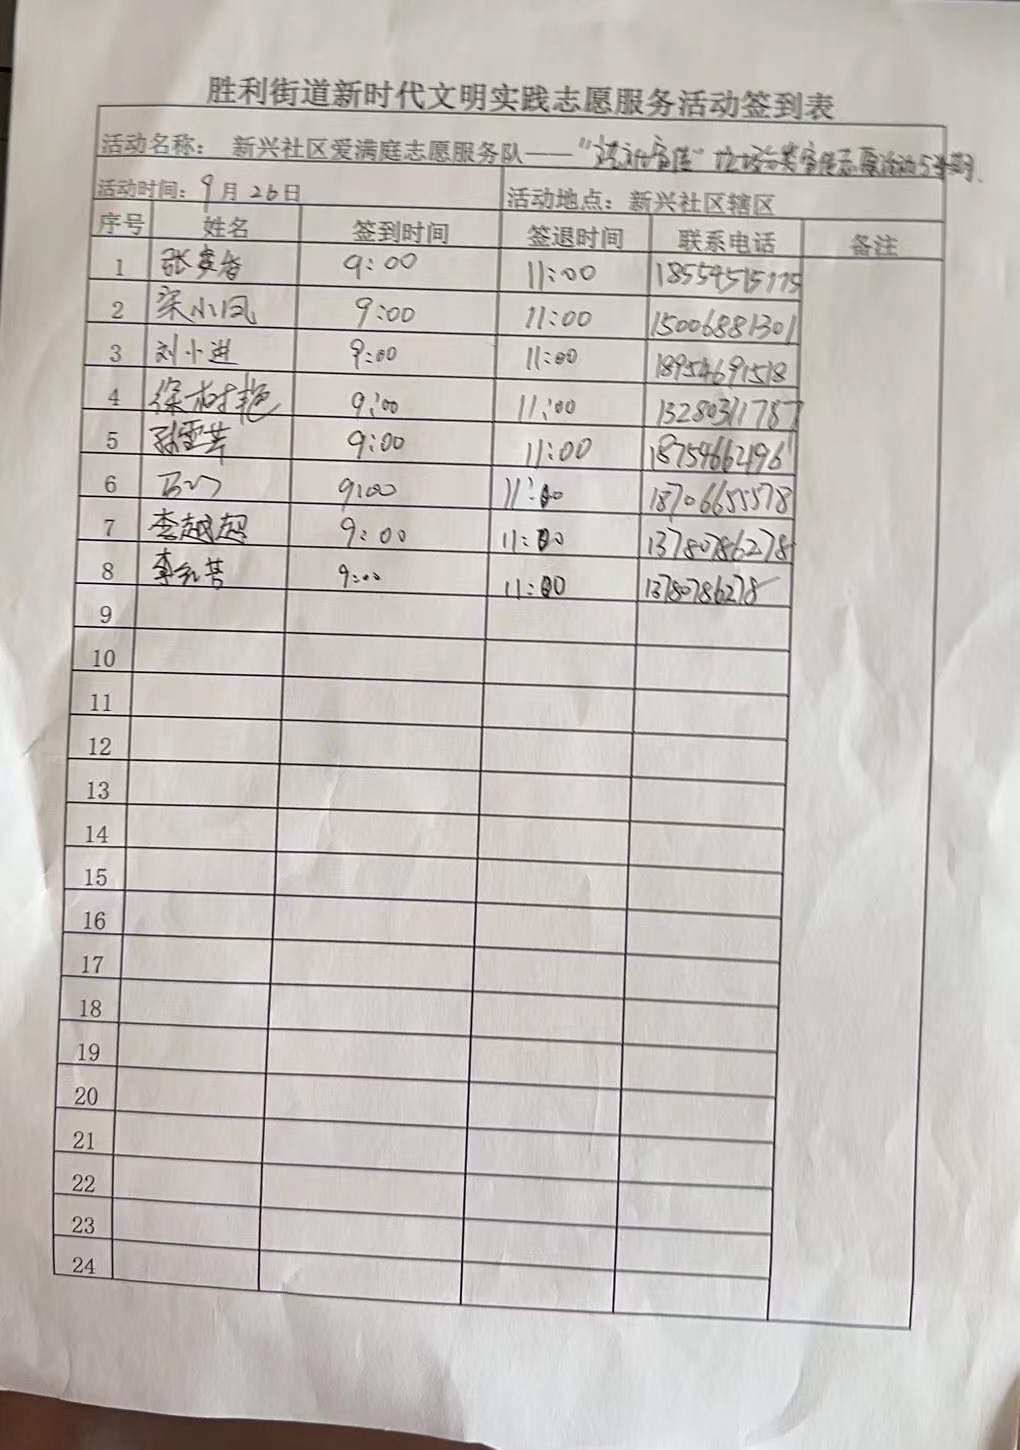 胜利街道新时代文明实践志愿服务活动签到表
活动名称： 新兴社区爱满庭志愿服务队——“ 宣传” 垃圾分类宣传志愿活动
活动时间：9月26日 活动地点：新兴社区辖区
序号 姓名 签到时间 签退时间 联系电话 备注
1 张 9:00 11:00
2 宋小凤 9:00 11:00 15006881301
3 刘小进 9:00 11:00 18954691518
4 徐树艳 9:00 11:00 13280311787
5 孙雪芹 9:00 11:00 18754662196
6 9:00 11:00 18706655578
7 李越超 9:00 11:00 13780786278
8 李 9:00 11:00 13780786278
9
10
11
12
13
14
15
16
17
18
19
20
21
22
23
24